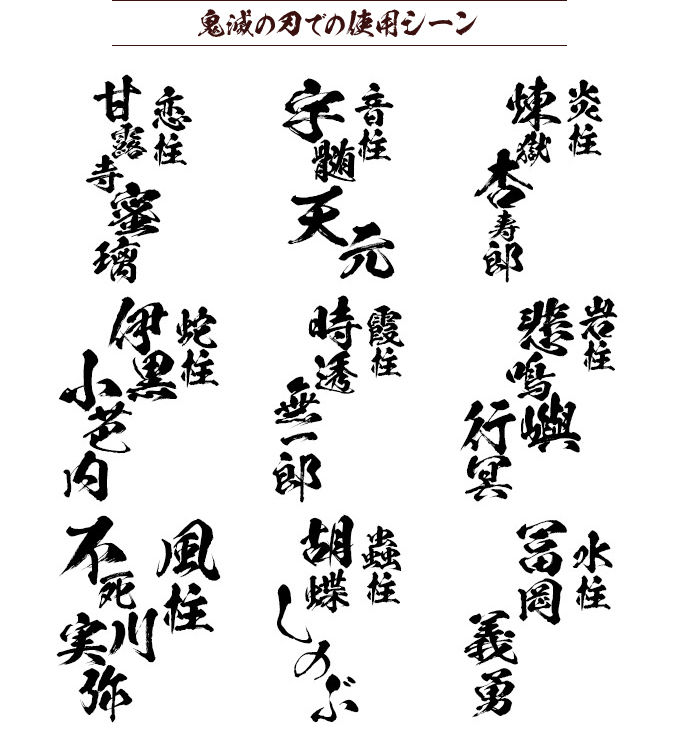 鬼滅の刃での使用シーン
炎柱
煉獄杏寿郎
音柱
宇髄天元
恋柱
甘露寺蜜璃
岩柱
悲鳴嶼行冥
霞柱
時透無一郎
蛇柱
伊黒小芭内
水柱
冨岡義勇
蟲柱
胡蝶しのぶ
風柱
不死川実弥